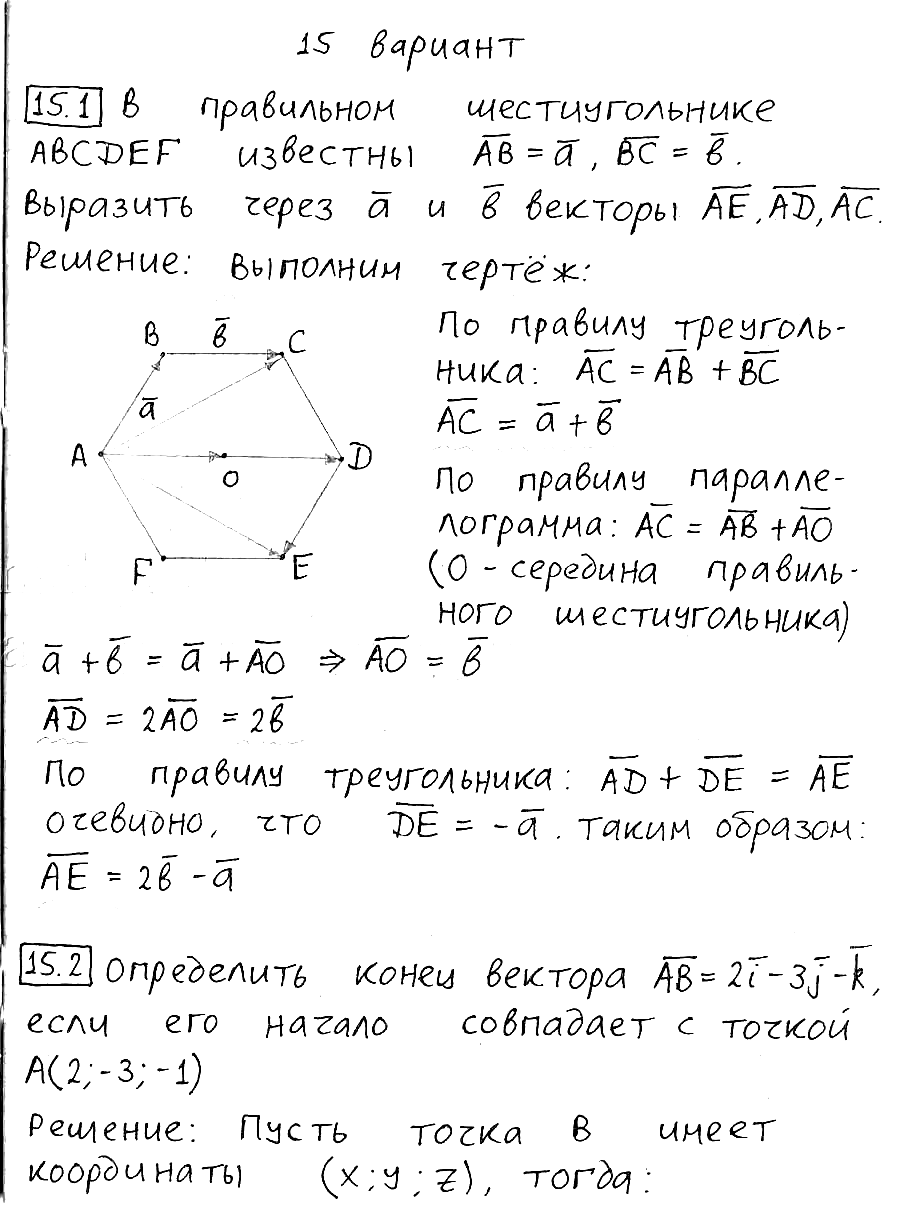 15 вариант
15.1 В правильном шестиугольнике
ABCDEF известны A̅B̅ = a̅, B̅C̅ = b̅.
Выразить через a̅ и b̅ векторы A̅E̅, A̅D̅, A̅C̅.
Решение: выполним чертёж:
B b̅ C
a̅
A O D
F E
По правилу треуголь-
ника: A̅C̅ = A̅B̅ + B̅C̅
A̅C̅ = a̅ + b̅
По правилу паралле-
лограмма: A̅C̅ = A̅B̅ + A̅O̅
(О - середина правиль-
ного шестиугольника)
a̅ + b̅ = a̅ + A̅O̅ ⇒ A̅O̅ = b̅
A̅D̅ = 2A̅O̅ = 2b̅
По правилу треугольника: A̅D̅ + D̅E̅ = A̅E̅
очевидно, что D̅E̅ = -a̅. Таким образом:
A̅E̅ = 2b̅ - a̅
15.2 Определить конец вектора A̅B̅ = 2i̅ - 3j̅ - k̅,
если его начало совпадает с точкой
A(2; -3; -1)
Решение: Пусть точка B имеет
координаты (x; y; z), тогда: